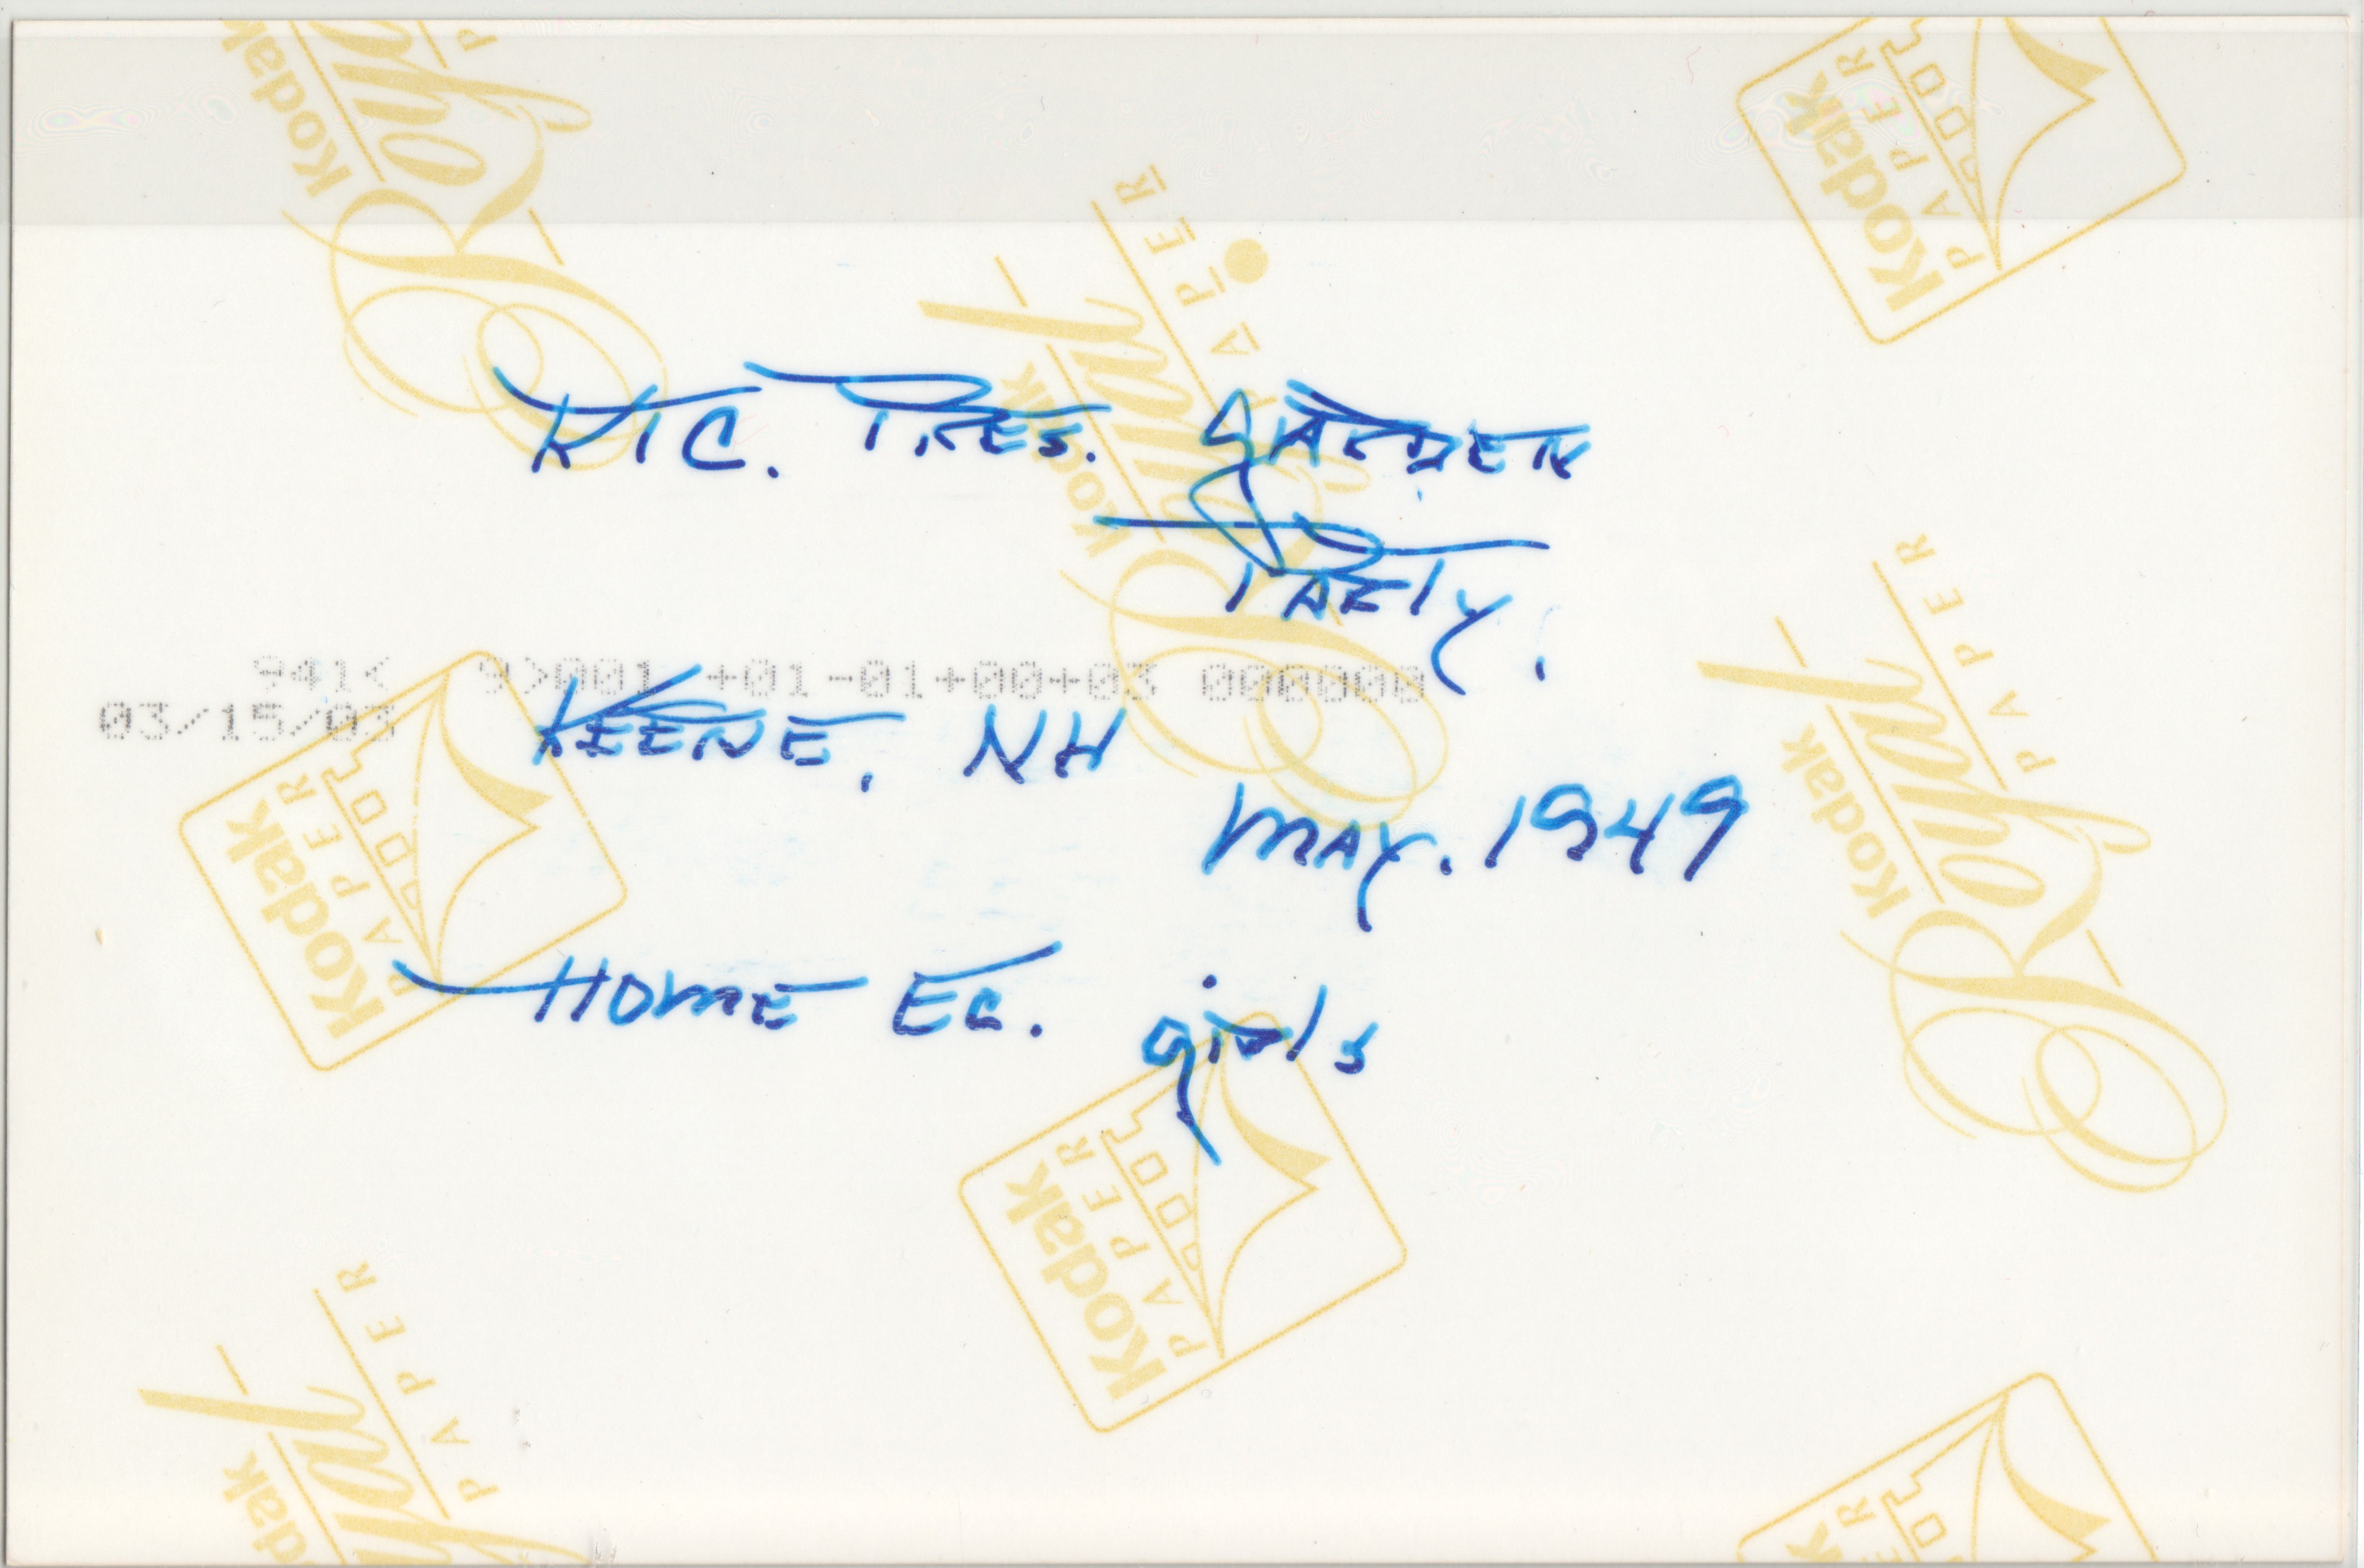 KTC. Pres. Garden
Party.
941< 9>001 +01-01+00+03 000000
03/15/03
KEENE, NH
May. 1949
Home Ec. girls
Kodak
Royal
PAPER
Kodak
PAPER